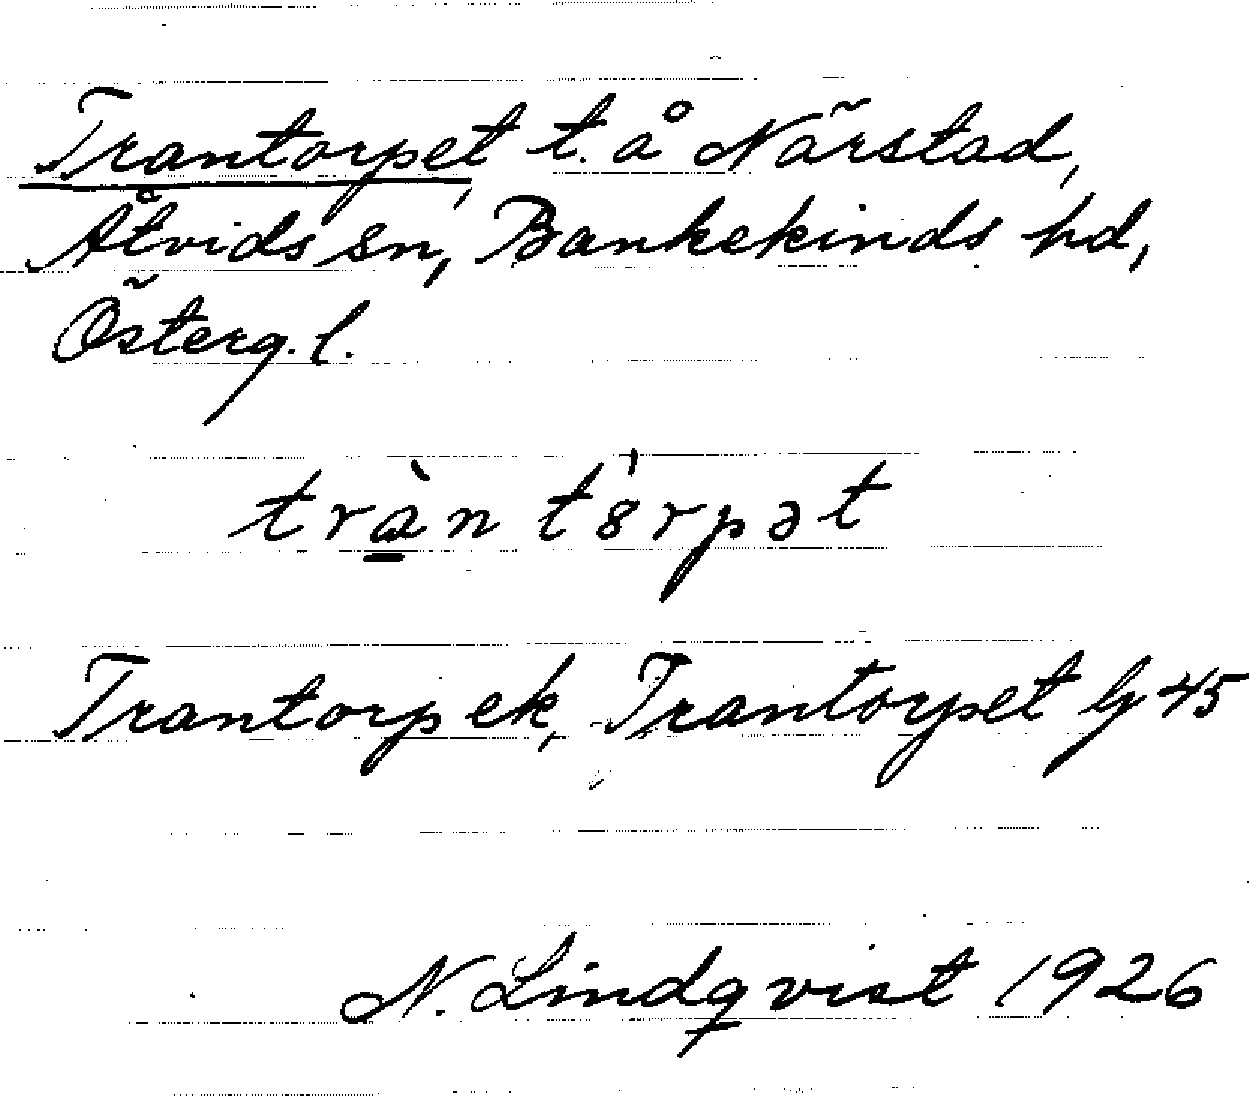 Trantorpet t. å Närstad,
Åtvids sn, Bankekinds hd,
Österg. l.
trà̲n tꞌ8rpət
Trantorp ek, Trantorpet lj 45
N. Lindqvist 1926